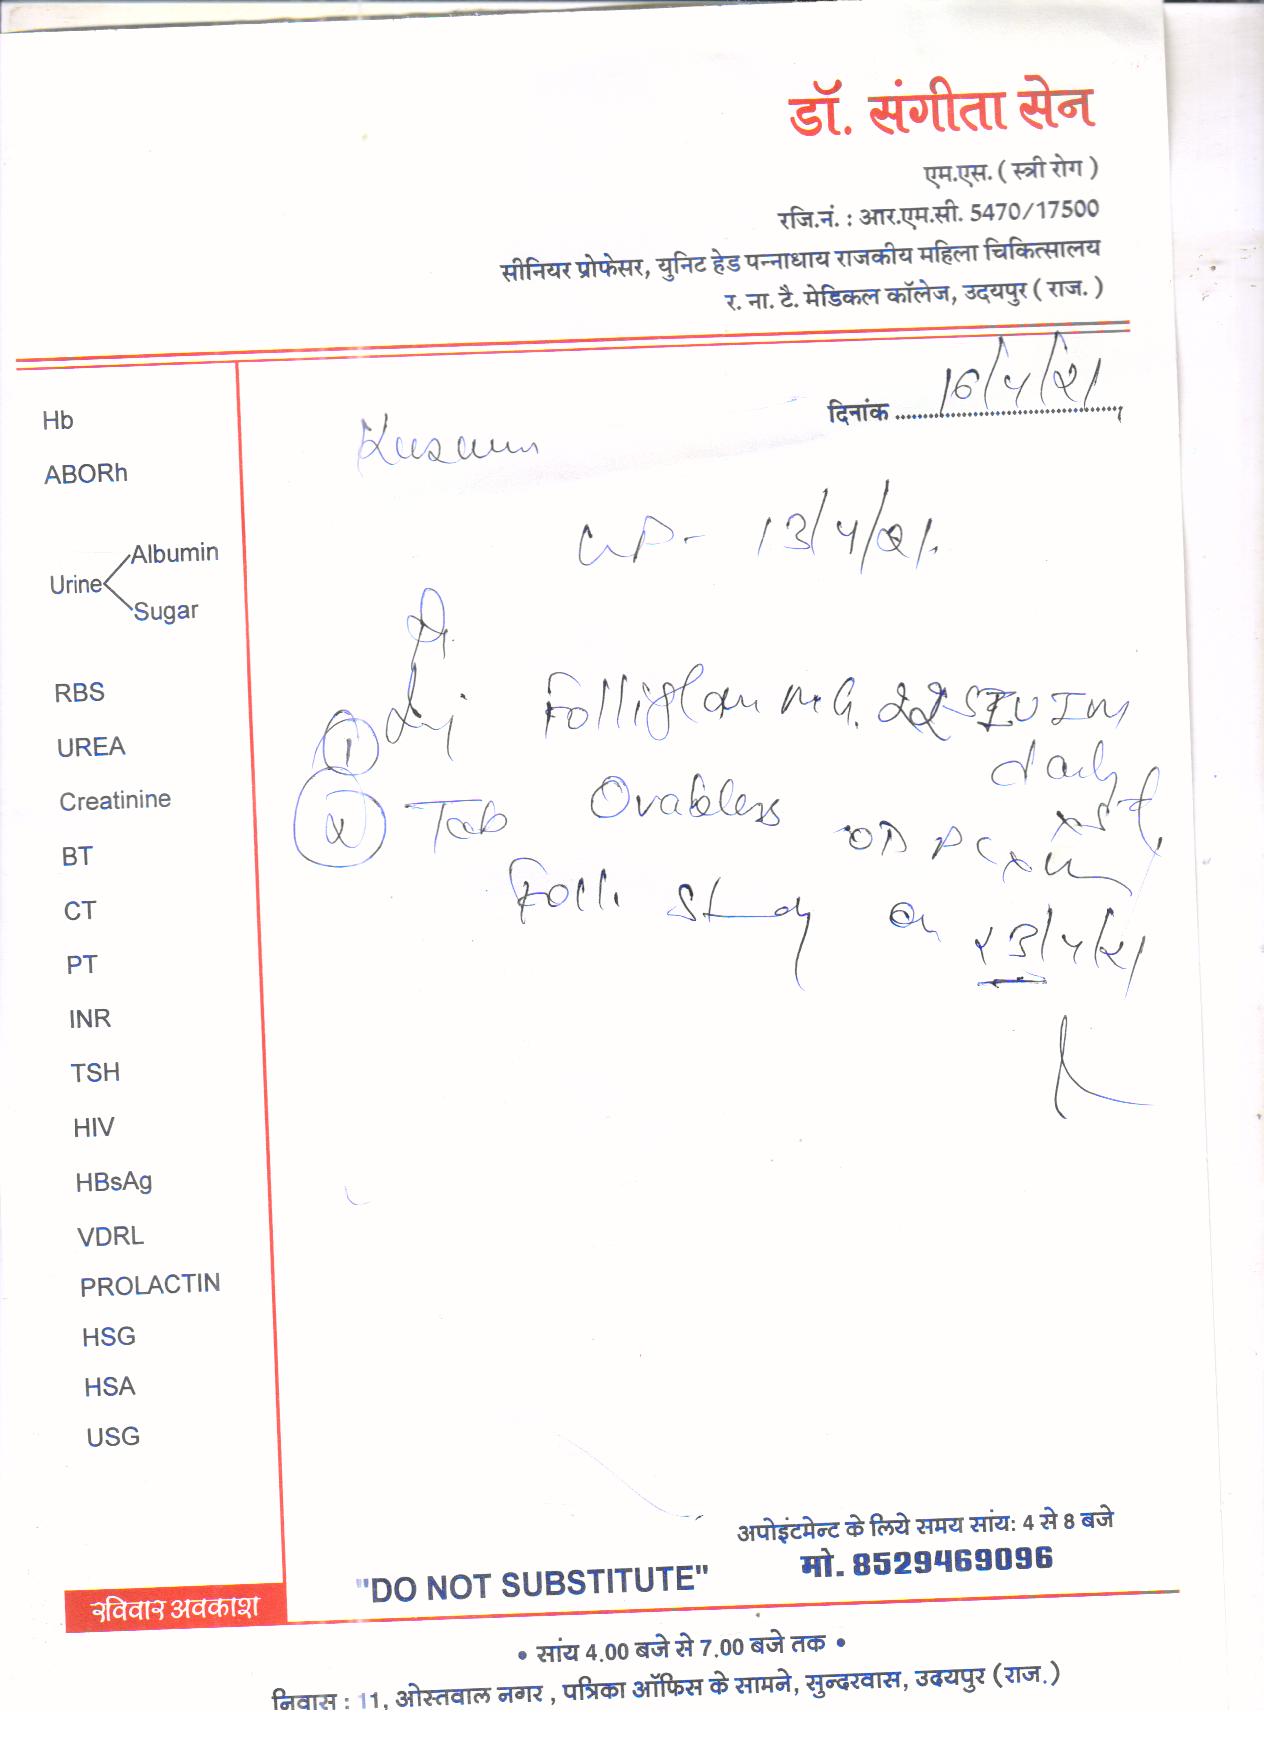 डॉ. संगीता सेन
एम.एस. ( स्त्री रोग )
रजि.नं. : आर.एम.सी. 5470/17500
सीनियर प्रोफेसर, युनिट हेड पन्नाधाय राजकीय महिला चिकित्सालय
र. ना. टै. मेडिकल कॉलेज, उदयपुर ( राज. )
दिनांक 16/4/21
Kusum
13/4/21
Hb
ABORh
Urine Albumin
Sugar
RBS
UREA
Creatinine
BT
CT
PT
INR
TSH
HIV
HBsAg
VDRL
PROLACTIN
HSG
HSA
USG
1 Inj Folliglan IU IM
daily
2 Tab Ovabless OD PC
Folli Study on 23/4/21
अपोइंटमेन्ट के लिये समय सांय: 4 से 8 बजे
मो. 8529469096
"DO NOT SUBSTITUTE"
रविवार अवकाश
• सांय 4.00 बजे से 7.00 बजे तक •
निवास : 11, ओस्तवाल नगर , पत्रिका ऑफिस के सामने, सुन्दरवास, उदयपुर (राज.)